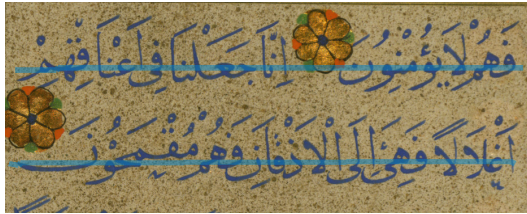 فَهُمْ لَا يُؤْمِنُونَ اِنَّا جَعَلْنَا فٖى اَعْنَاقِهِمْ
اَغْلَالًا فَهِىَ اِلَى الْاَذْقَانِ فَهُمْ مُقْمَحُونَ